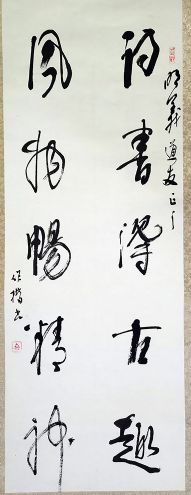 明義道友正之
詩書得古趣
風物暢精神